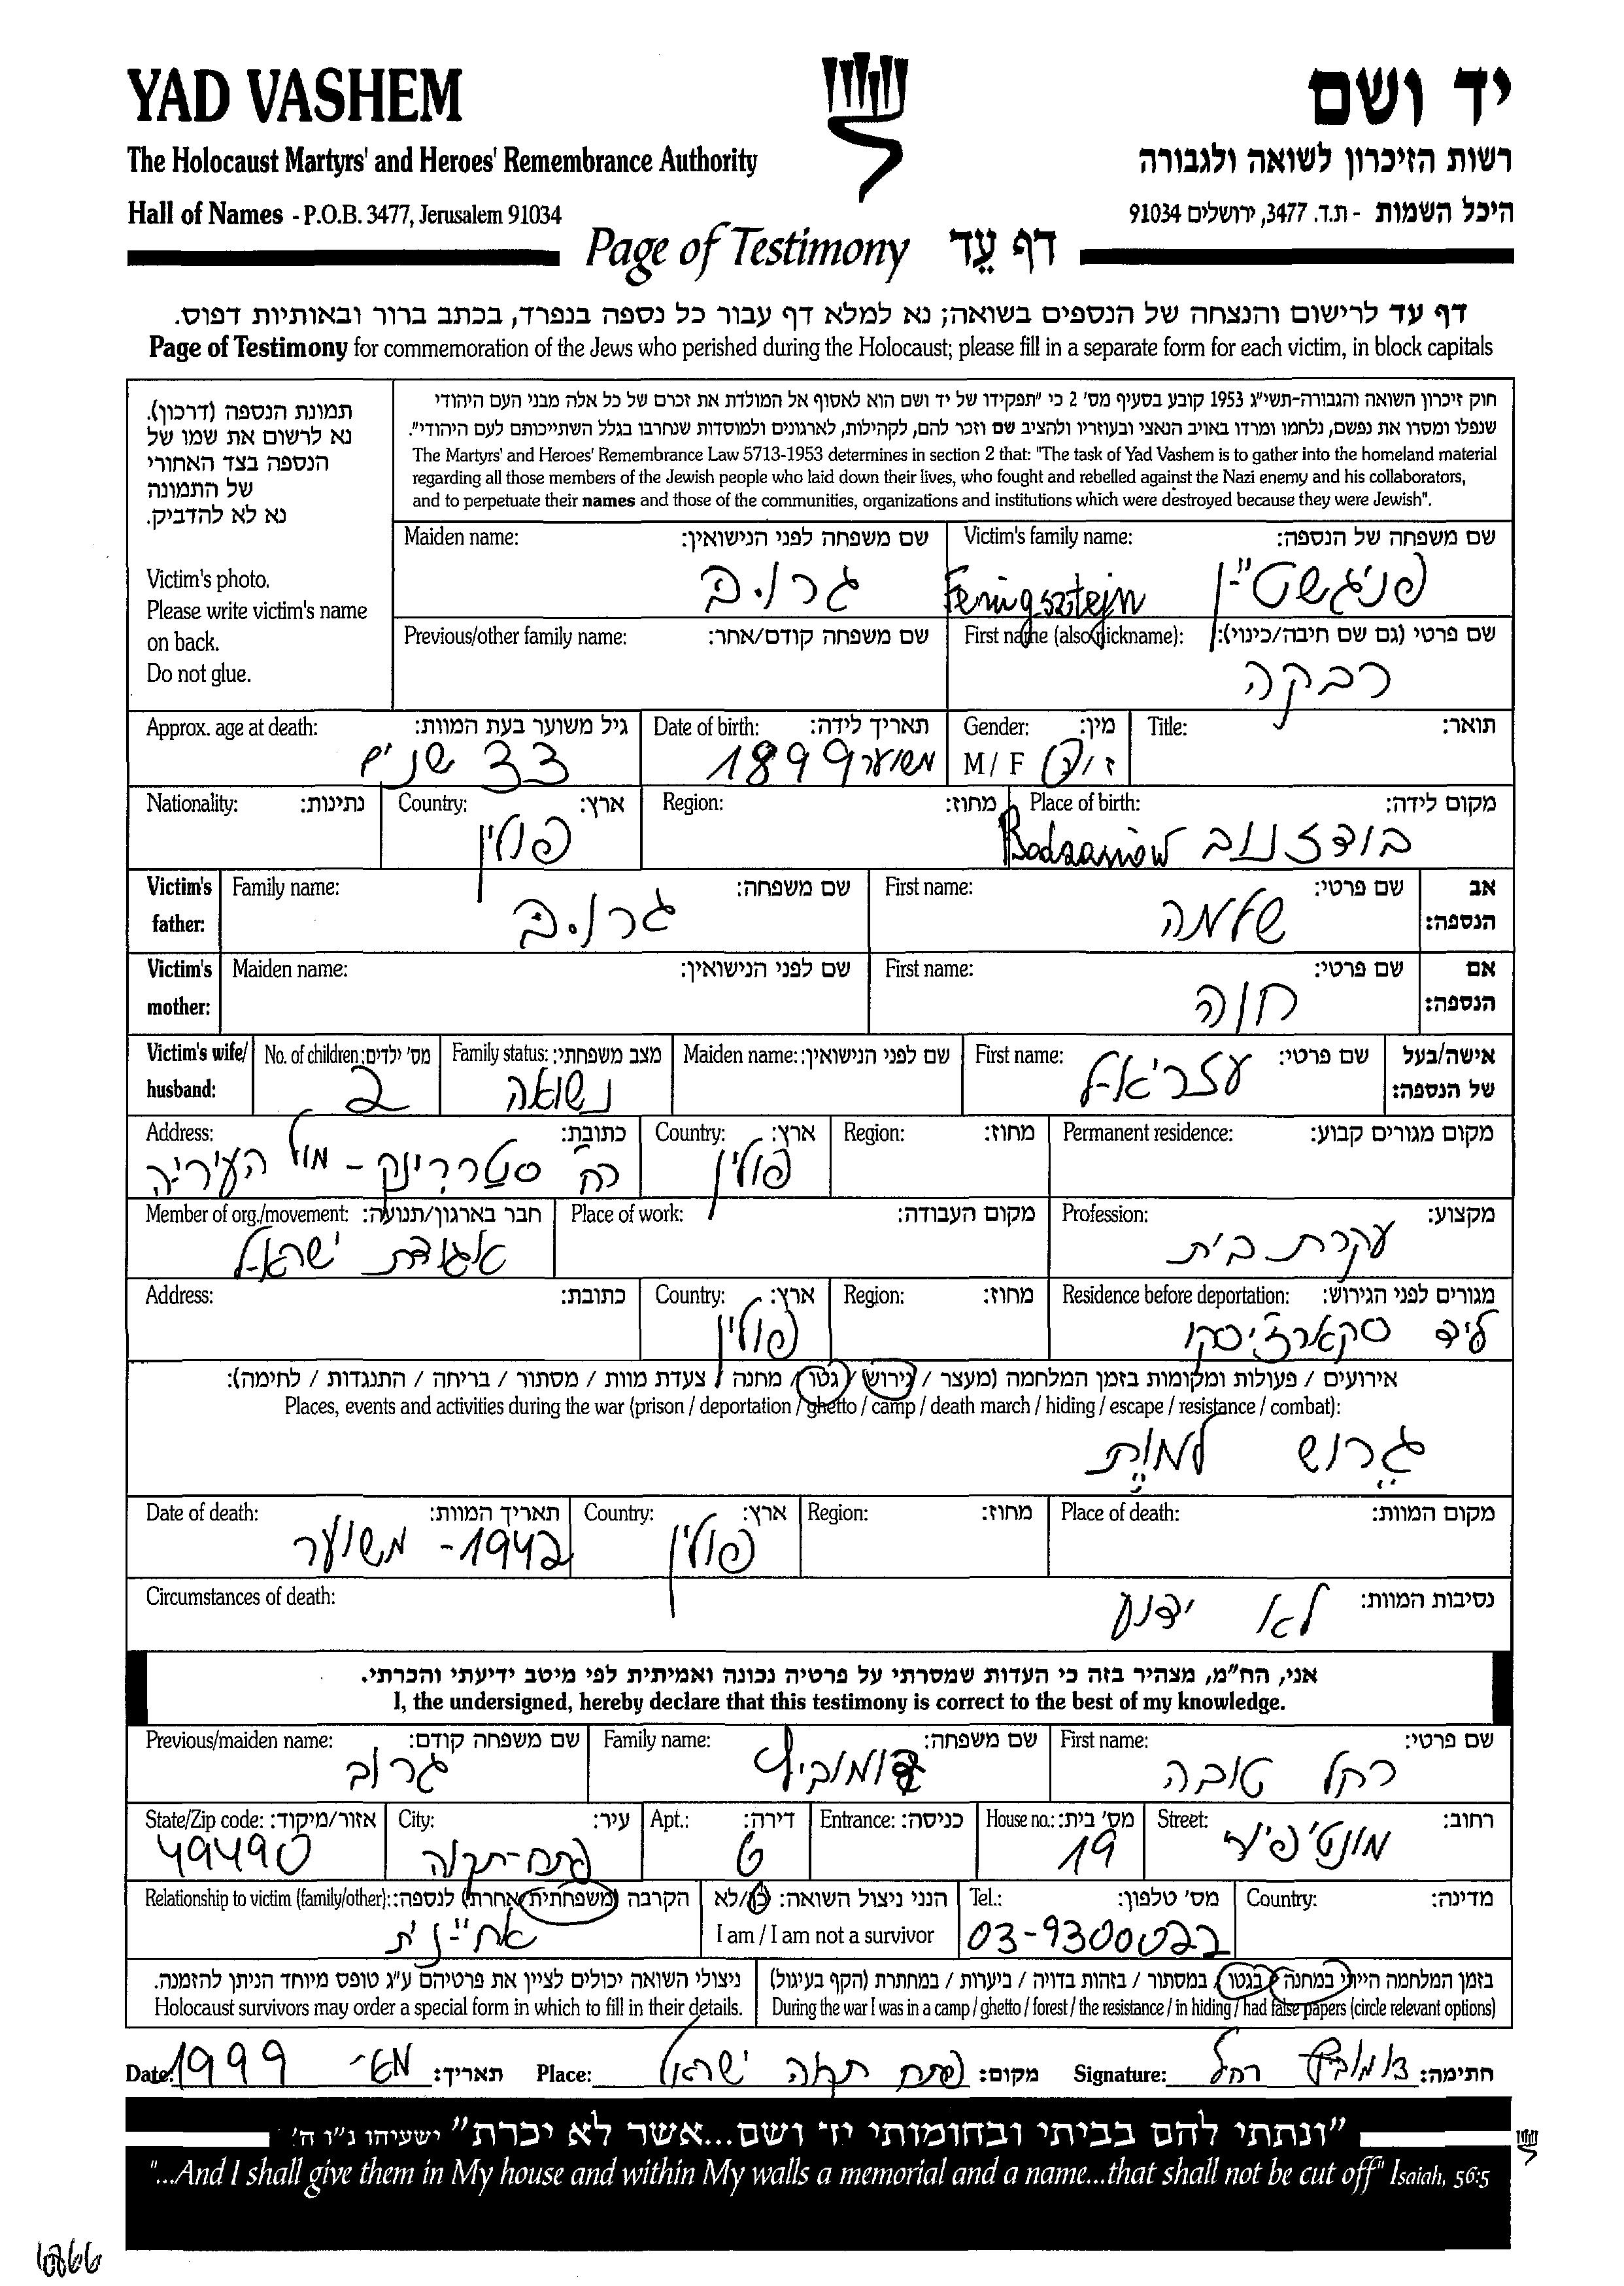 YAD VASHEM
יד ושם
The Holocaust Martyrs' and Heroes' Remembrance Authority
רשות הזיכרון לשואה ולגבורה
Hall of Names - P.O.B. 3477, Jerusalem 91034
היכל השמות - ת.ד. 3477, ירושלים 91034
Page of Testimony דף עֵד
דף עד לרישום והנצחה של הנספים בשואה; נא למלא דף עבור כל נספה בנפרד, בכתב ברור ובאותיות דפוס.
Page of Testimony for commemoration of the Jews who perished during the Holocaust; please fill in a separate form for each victim, in block capitals
תמונת הנספה (דרכון).
נא לרשום את שמו של
הנספה בצד האחורי
של התמונה
נא לא להדביק.
Victim's photo.
Please write victim's name
on back.
Do not glue.
חוק זיכרון השואה והגבורה-תשי"ג 1953 קובע בסעיף מס' 2 כי "תפקידו של יד ושם הוא לאסוף אל המולדת את זכרם של כל אלה מבני העם היהודי
שנפלו ומסרו את נפשם, נלחמו ומרדו באויב הנאצי ובעוזריו ולהציב שם וזכר להם, לקהילות, לארגונים ולמוסדות שנחרבו בגלל השתייכותם לעם היהודי".
The Martyrs' and Heroes' Remembrance Law 5713-1953 determines in section 2 that: "The task of Yad Vashem is to gather into the homeland material
regarding all those members of the Jewish people who laid down their lives, who fought and rebelled against the Nazi enemy and his collaborators,
and to perpetuate their names and those of the communities, organizations and institutions which were destroyed because they were Jewish".
שם משפחה של הנספה: Victim's family name:
פניגשטיין Fenigsztejn
שם משפחה לפני הנישואין: Maiden name:
גרוב
שם פרטי (גם שם חיבה/כינוי): First name (also nickname):
רבקה
שם משפחה קודם/אחר: Previous/other family name:
תואר: Title:
מין: Gender:
ז/נ M / F
תאריך לידה: Date of birth:
משוער 1899
גיל משוער בעת המוות: Approx. age at death:
33 שנים
מקום לידה: Place of birth:
בודזנוב Bodzanów
מחוז: Region:
ארץ: Country:
פולין
נתינות: Nationality:
אב הנספה: Victim's father:
שם פרטי: First name:
שלמה
שם משפחה: Family name:
גרוב
אם הנספה: Victim's mother:
שם פרטי: First name:
חנה
שם לפני הנישואין: Maiden name:
אישה/בעל של הנספה: Victim's wife/ husband:
שם פרטי: First name:
עזריאל
שם לפני הנישואין: Maiden name:
מצב משפחתי: Family status:
נשואה
מס' ילדים: No. of children:
2
מקום מגורים קבוע: Permanent residence:
מחוז: Region:
ארץ: Country:
פולין
כתובת: Address:
רח' - מול העיריה
מקצוע: Profession:
עקרת בית
מקום העבודה: Place of work:
חבר בארגון/תנועה: Member of org./movement:
אגודת ישראל
מגורים לפני הגירוש: Residence before deportation:
ליד סקארזיסקו
מחוז: Region:
ארץ: Country:
פולין
כתובת: Address:
אירועים / פעולות ומקומות בזמן המלחמה (מעצר / גירוש / גטו / מחנה / צעדת מוות / מסתור / בריחה / התנגדות / לחימה):
Places, events and activities during the war (prison / deportation / ghetto / camp / death march / hiding / escape / resistance / combat):
גרוש למות
מקום המוות: Place of death:
מחוז: Region:
ארץ: Country:
פולין
תאריך המוות: Date of death:
1942 - משוער
נסיבות המוות: Circumstances of death:
לא ידוע
אני, הח"מ, מצהיר בזה כי העדות שמסרתי על פרטיה נכונה ואמיתית לפי מיטב ידיעתי והכרתי.
I, the undersigned, hereby declare that this testimony is correct to the best of my knowledge.
שם פרטי: First name:
רחל טובה
שם משפחה: Family name:
שם משפחה קודם: Previous/maiden name:
גרוב
רחוב: Street:
מס' בית: House no.:
19
כניסה: Entrance:
דירה: Apt.:
6
עיר: City:
פתח-תקוה
אזור/מיקוד: State/Zip code:
49490
מדינה: Country:
מס' טלפון: Tel.:
03-9300022
הנני ניצול השואה: כן/לא
I am / I am not a survivor
הקרבה (משפחתית/אחרת) לנספה: Relationship to victim (family/other):
אחיינית
בזמן המלחמה הייתי במחנה / בגטו / במסתור / בזהות בדויה / ביערות / במחתרת (הקף בעיגול)
During the war I was in a camp / ghetto / forest / the resistance / in hiding / had false papers (circle relevant options)
ניצולי השואה יכולים לציין את פרטיהם ע"ג טופס מיוחד הניתן להזמנה.
Holocaust survivors may order a special form in which to fill in their details.
חתימה: רחל Signature:
מקום: פתח תקוה ישראל Place:
תאריך: 1999 Date:
"ונתתי להם בביתי ובחומותי יד ושם...אשר לא יכרת" ישעיהו נ"ו ה'
"...And I shall give them in My house and within My walls a memorial and a name...that shall not be cut off" Isaiah, 56:5